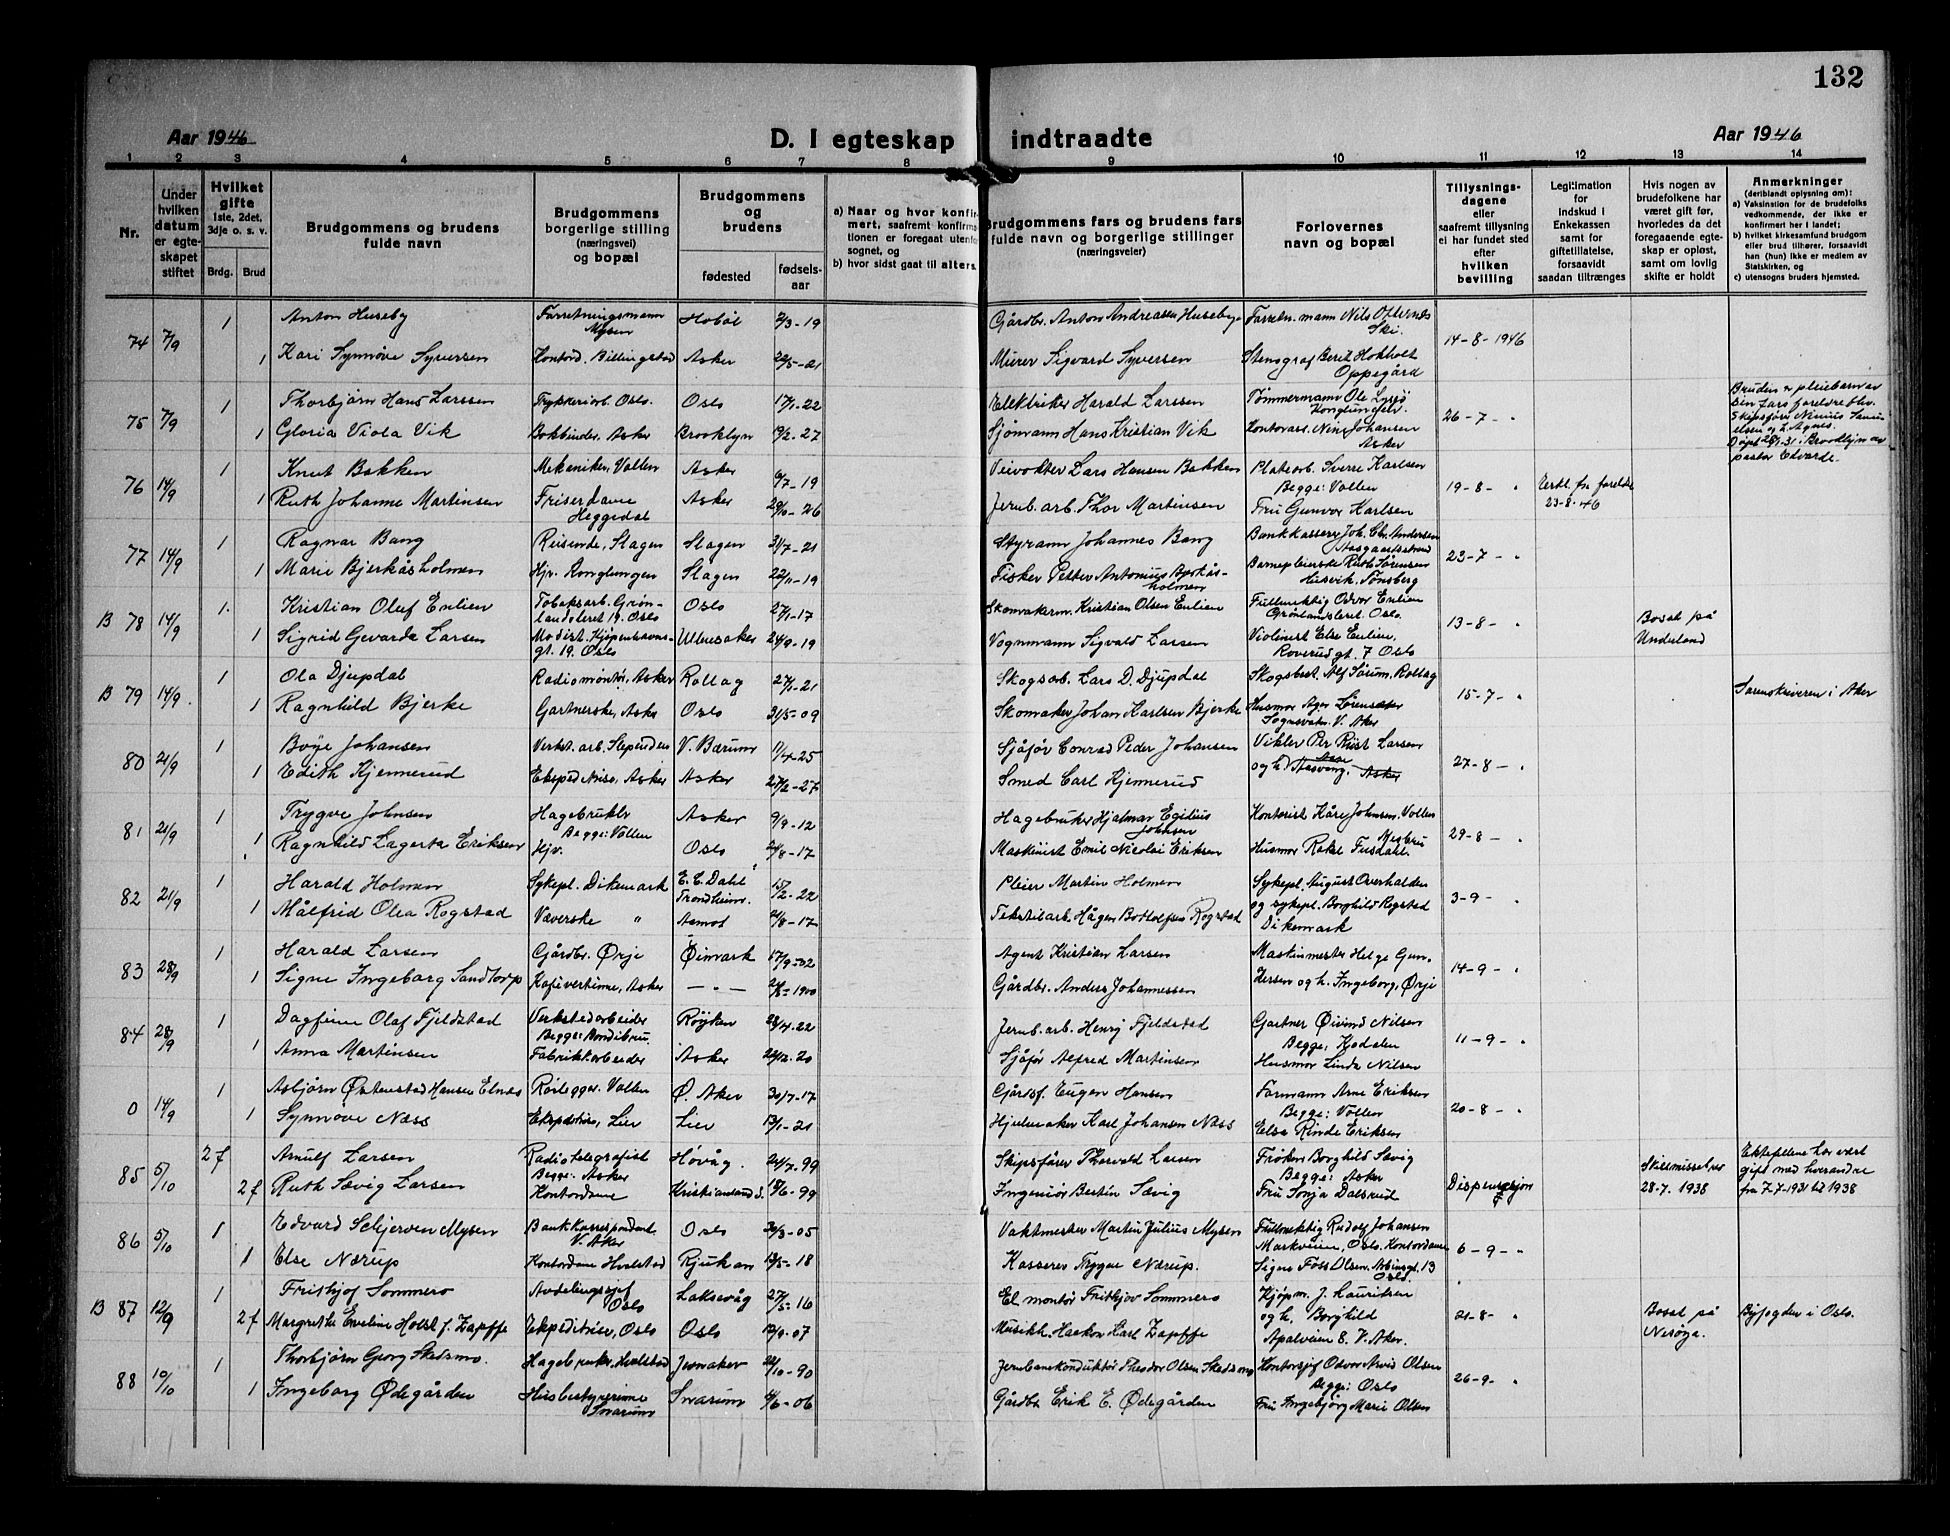 132
Aar 1946
D. I egteskap indtraadte
Aar 1946
1 2 3 4 5 6 7 8 9 10 11 12 13 14
Nr.
Under hvilken datum er egteskapet stiftet
Hvilket gifte 1ste, 2det, 3dje o. s. v.
Brdg. Brud
Brudgommens og brudens fulde navn
Brudgommens borgerlige stilling (næringsvei) og bopæl
Brudgommens og brudens
fødested
fødselsaar
a) Naar og hvor konfirmert, saafremt konfirmationen er foregaat utenfor sognet, og
b) hvor sidst gaat til alters.
Brudgommens fars og brudens fars fulde navn og borgerlige stillinger (næringsveier)
Forlovernes navn og bopæl
Tillysningsdagene eller saafremt tillysning ei har fundet sted efter hvilken bevilling
Legitimation for indskud i Enkekassen samt for giftetillatelse, forsaavidt saadan tiltrænges
Hvis nogen av brudefolkene har været gift før, hvorledes da det foregaaende egteskap er opløst, samt om lovlig skifte er holdt
Anmerkninger (deriblandt oplysning om):
a) Vaksination for de brudefolks vedkommende, der ikke er konfirmert her i landet;
b) hvilket kirkesamfund brudgom eller brud tilhører, forsaavidt han (hun) ikke er medlem av Statskirken, og
c) utensogns bruders hjemsted.
74 7/9 1 Anton Huseby Forretningsmann Mysen Hobøl 2/3-19 Gårdbr. Anton Andreassen Huseby Ski. 14-8-1946
1 Kari Synnøve Syversen Kontord. Billingstad Asker 22/5-21 Murer Sigvard Syversen Stenograf Berit Hokholt Oppegård
75 7/9 1 Thorbjørn Hans Larssen Trykkeriarb. Oslo. Oslo 17/1-22 Elektriker Harald Larssen Tømmermann Ole 26-7 "
1 Gloria Viola Vik Bokbinder, Asker Brooklyn 19/2-27 Sjømann Hans Kristian Vik Kontorass. Johansen Asker
Bruden er pleiebarn av
76 14/9 1 Knut Bakken Mekaniker, Vollen Asker 9/7-19 Veivokter Lars Hansen Bakken Platearb. Sverre Karlsen Begge: Vollen 19-8- "
1 Ruth Johanne Martinsen Friserdame Heggedal Asker 29/10-26 Jernb. arb. Thor Martinsen Fru Gunvor Karlsen
23-8-46
77 14/9 1 Ragnar Bang Reisende, Slagen Slagen 31/7-21 Styrmann Johannes Bang Bankkasserer Joh. Chr. Andersen Aasgaardstrand 23-7- "
1 Marie Bjerkåsholmen Hjv. Konglungen Slagen 22/11-19 Fisker Petter Antonius Bjerkåsholmen Barnepleierske Ruth Sørensen Husvik, Tønsberg
B 78 14/9 1 Kristian Oluf Enlien Tobaksarb. Grønlandsleret 19. Oslo Oslo 27/1-17 Skomakerm. Kristian Olsen Enlien Fullmektig Odvar Enlien Grønlandsleret. Oslo. 13-8- "
1 Sigrid Gevarda Larsen Modist. Kjøpenhavnsgt. 19. Oslo Ullensaker 24/9-19 Vognmann Sigvald Larsen Violinist Else Enlien, Roverudgt. 7 Oslo
Bosat på Underland
B 79 14/9 1 Ola Djupdal Radiomontør, Asker Rollag 27/1-21 Skogsarb. Lars D. Djupdal Skogsbest. Alf Sørum, Rollag 15-7- "
1 Ragnhild Bjerke Gartnerske, Asker Oslo 31/5-09 Skomaker Johan Karlsen Bjerke Husmor Sognsvatn. V. Aker
Sorenskriveren i Aker
80 21/9 1 Boye Johansen Verkst. arb. Slependen V. Bærum 11/4-25 Sjåfør Conrad Peder Johansen Vikler Per Riist Larsen 27-8- "
1 Edith Kjennerud Ekspeditrise, Asker Asker 27/2-27 Smed Carl Kjennerud og h. Aasvang, Asker
81 21/9 1 Trygve Johnsen Hagebruker Begge: Vollen Asker 9/9-12 Hagebruker Hjalmar Egilius Johnsen Kontorist Kåre Johnsen. Vollen 29-8- "
1 Ragnhild Lagerta Eriksen Hjv. Oslo 24/8-17 Maskinist Emil Nicolai Eriksen Husmor Rakel Fusdahl.
82 21/9 1 Harald Holmen Sykepl. Dikemark Trondheim. 15/2-22 Pleier Martin Holmen Sykepl. August Overhalden 3-9- "
1 Målfrid Olea Rogstad Væverske " Aamot 21/8-17 Tekstilarb. Hågen Bottolfsen Rogstad og sykepl. Borghild Rogstad Dikemark
83 28/9 1 Harald Larsen Gårdbr. Ørje Øimark 17/9-02 Agent Kristian Larsen Maskinmester Helge Gundersen og h. Ingeborg, Ørje 14-9- "
1 Signe Ingeborg Sandtorp Kafévertinne, Asker — " — 21/8-1900 Gårdbr. Anders Johannessen
84 28/9 1 Dagfinn Olaf Fjeldstad Verkstedarbeider Begge: Bondibru. Røyken 28/4-22 Jernb. arb. Henry Fjeldstad Gartner Øivind Nilsen Begge, Hjedalen 11-9- "
1 Anna Martinsen Fabrikkarbeider Asker 22/12-20 Sjåfør Alfred Martinsen Husmor Linda Nilsen
0 14/9 1 Asbjørn Østenstad Hansen Elnes Rørlegger. Vollen Ø. Aker 30/7-17 Gårdsf. Eugen Hansen Formann Arne Eriksen Begge: Vollen 20-8- "
1 Synnøve Næss Ekspeditrise, Lier Lier 13/1-21 Hjulmaker Karl Johansen Næss Else Rinde Eriksen
85 5/10 2 f Arnulf Larsen Radiotelegrafist Begge: Asker Høvåg. 24/7-99 Skipsfører Thorvald Larsen Frøken Borghild Sævig Begge: Asker Dispensasjon
2 f Ruth Sævig Larsen Kontordame Kristiansund S. 18/6-99 Ingeniør Bertin Sævig Fru Sonja Dalsrud
28-7-1938
Ektefellene har vært gift med hverandre fra 7-7-1931 til 1938
86 5/10 1 Edvard Schjerven Mysen Bankkorrespondent V. Aker Oslo 20/3-05 Vaktmester Martin Julius Mysen Fullmektig Rudolf Johansen Markveien, Oslo. Kontordame 6-9- "
1 Else Nærup Kontordame Hvalstad Rjukan 13/5-18 Kasserer Trygve Nærup. Signe Foss Olsen, 13 Oslo.
B 87 12/9 1 Frithjof Sommero Avdelingssjef Oslo Laksevåg 27/5-16 El. montør Frithjov Sommero Kjøpm. J. Lauritsen 21-8- "
2 f Margrethe Eveline Holst f. Zapffe Ekspeditrise, Oslo Oslo 12/9-07 Musikk. Haakon Karl Zapffe og h. Borghild Apalveien 8. V. Aker.
Bosat på Nesøya. Byfogden i Oslo.
88 10/10 1 Thorbjørn Georg Skedsmo. Hagebruker, Hvalstad Jesnaker 22/10-90 Jernbanekonduktør Theodor Olsen Skedsmo Kontorsjef Odvar Arvid Olsen Begge: Oslo 26-9- "
1 Ingeborg Ødegården Husbestyrerinne Snarum Snarum 4/6-06 Gårdbr Erik E. Ødegården Fru Ingebjørg Marie Olsen